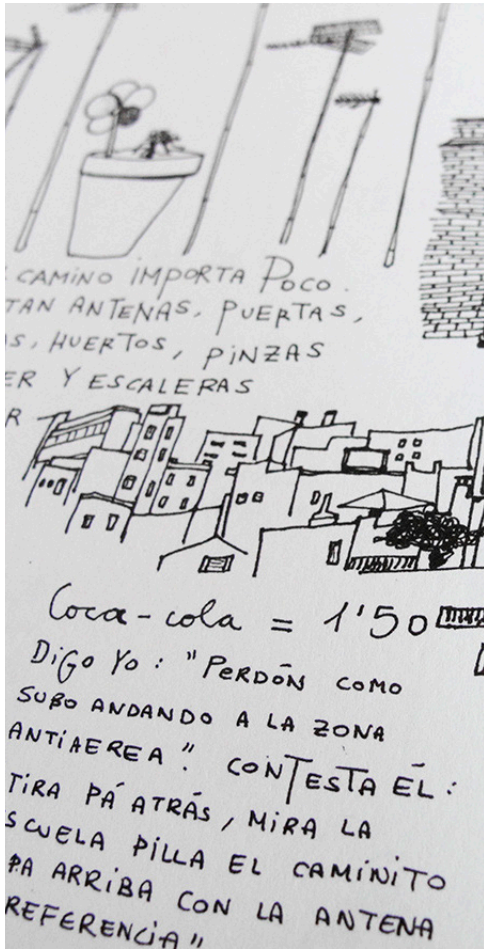 CAMINO IMPORTA POCO.
TAN ANTENAS, PUERTAS,
S, HUERTOS, PINZAS
ER Y ESCALERAS
R
Coca-cola = 1'50
DIGO YO: "PERDÓN COMO
SUBO ANDANDO A LA ZONA
ANTIAEREA". CONTESTA ÉL:
TIRA PÁ ATRÁS, MIRA LA
SCUELA PILLA EL CAMINITO
PA ARRIBA CON LA ANTENA
REFERENCIA"